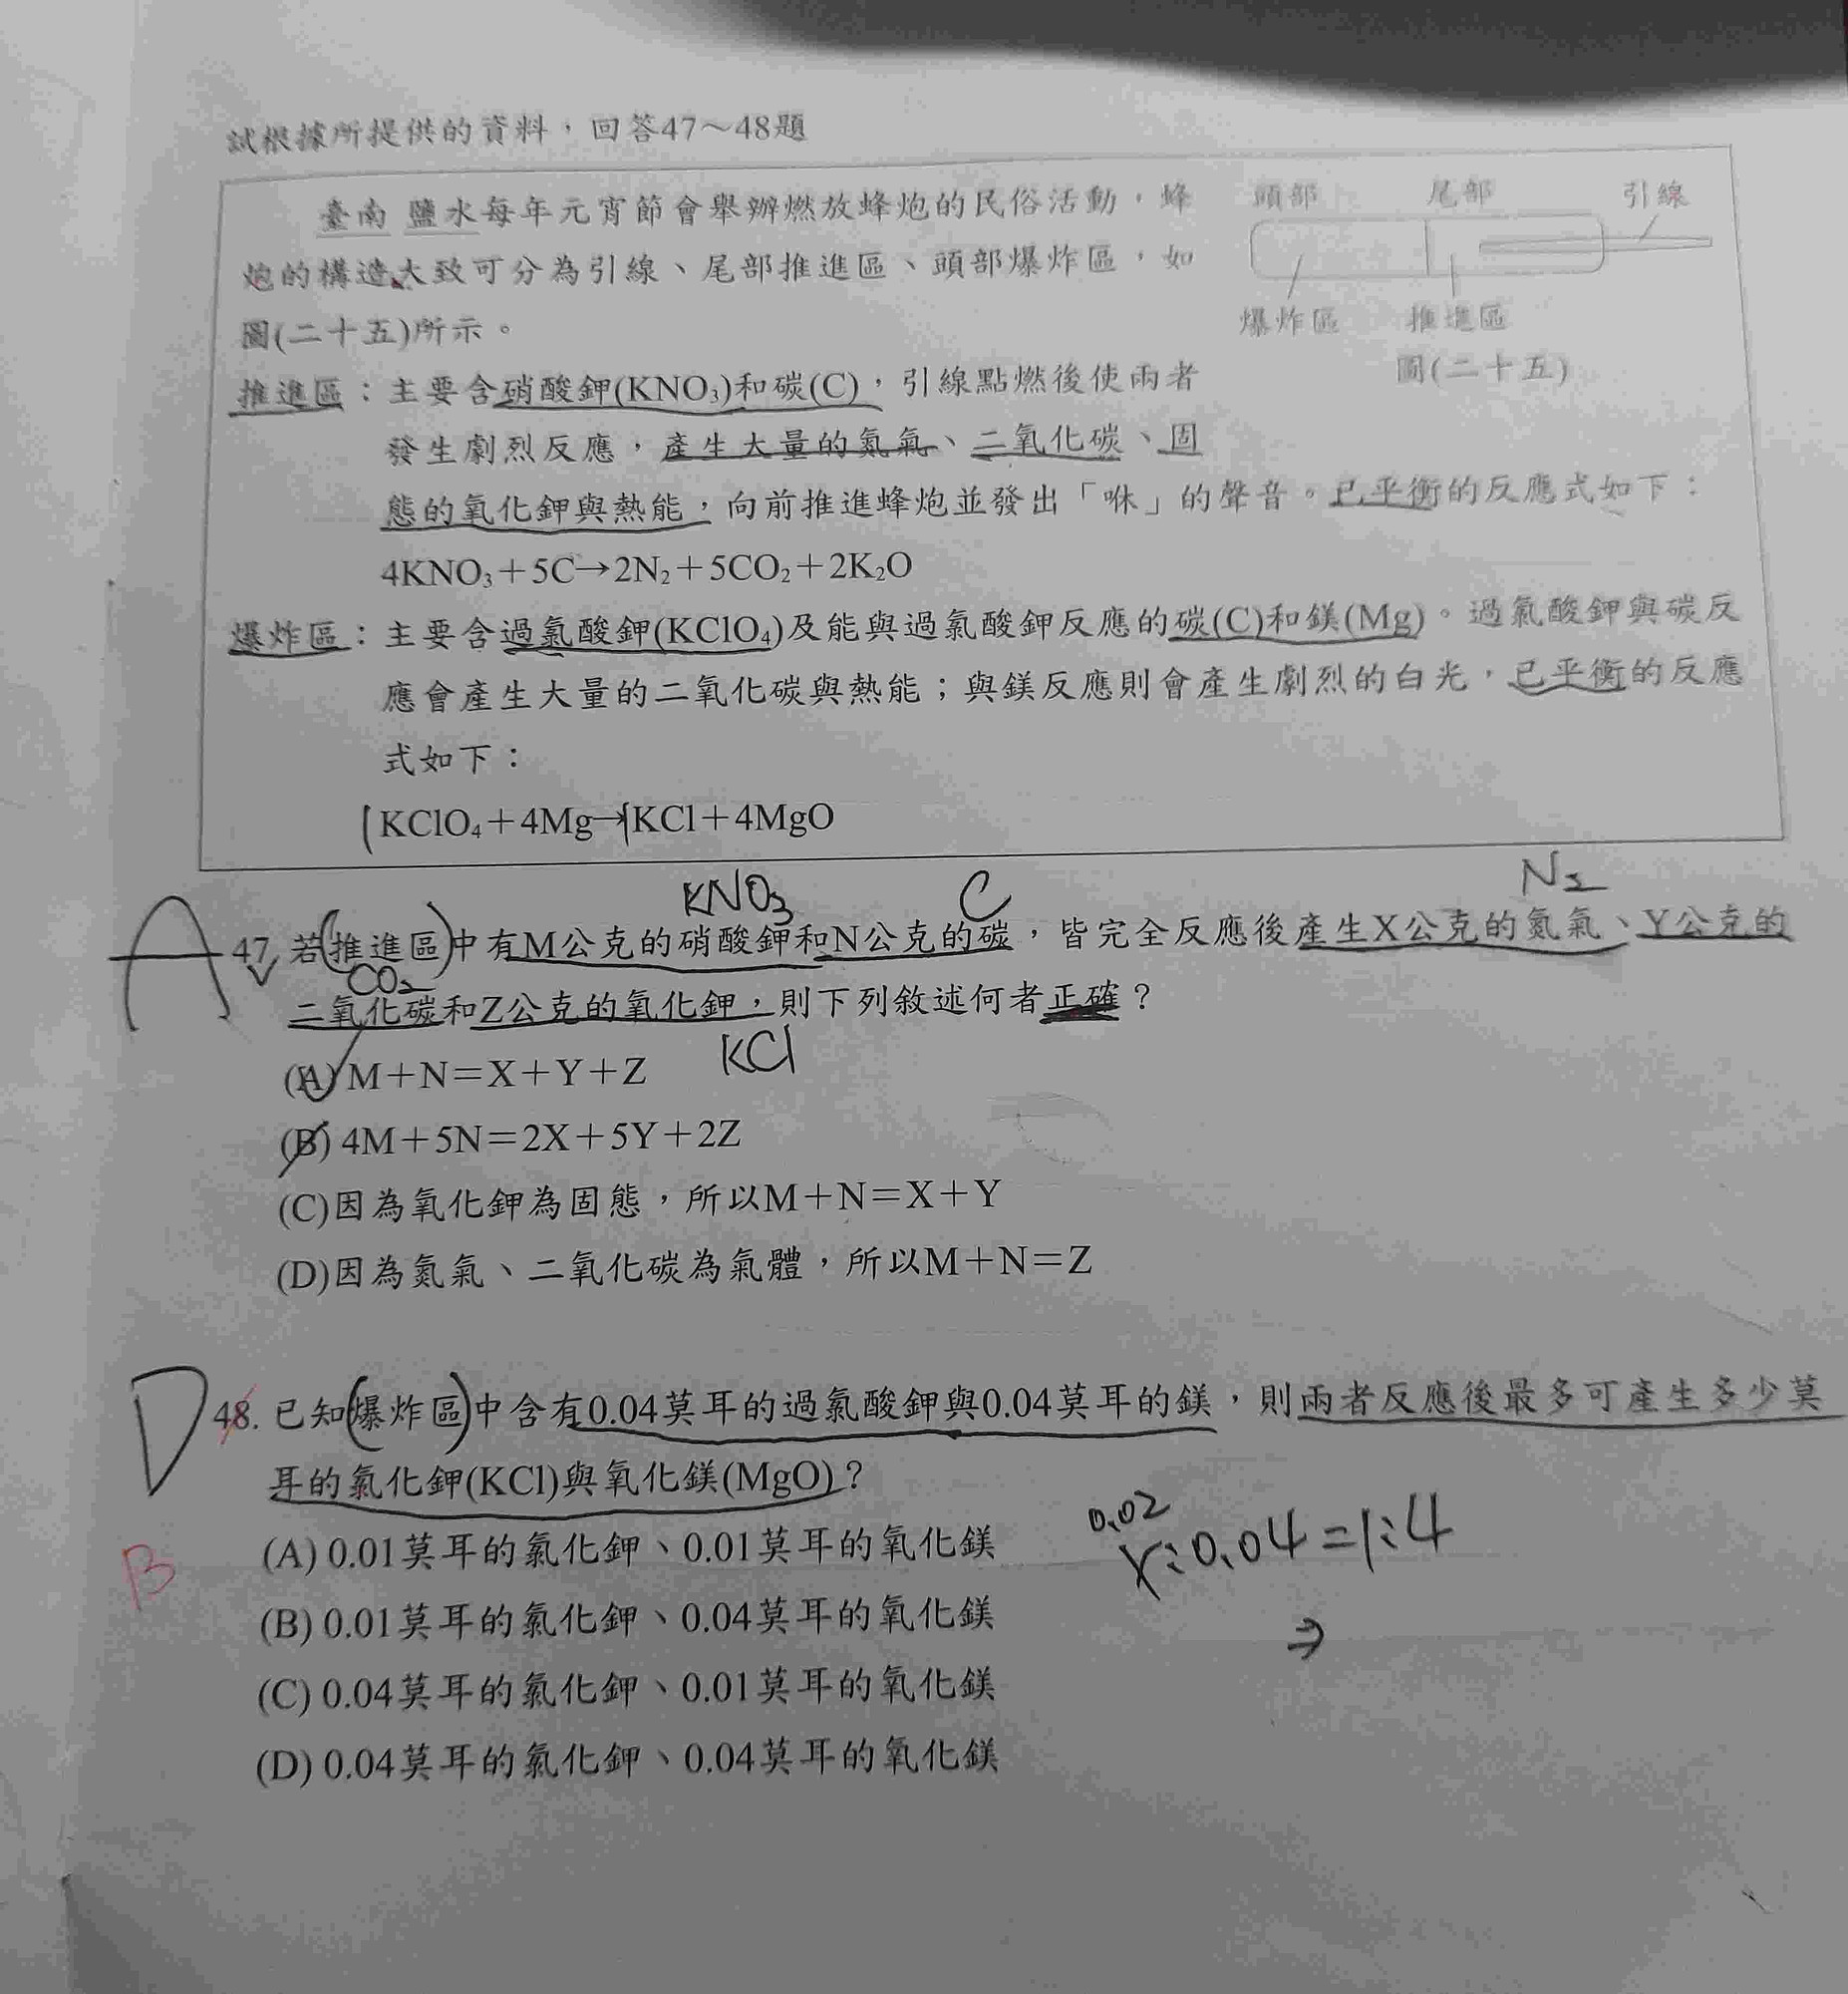 試根據所提供的資料，回答47～48題
臺南 鹽水每年元宵節會舉辦燃放蜂炮的民俗活動，蜂
炮的構造大致可分為引線、尾部推進區、頭部爆炸區，如
圖(二十五)所示。
頭部 尾部 引線
爆炸區 推進區
圖(二十五)
推進區：主要含硝酸鉀(KNO₃)和碳(C)，引線點燃後使兩者
發生劇烈反應，產生大量的氮氣、二氧化碳、固
態的氧化鉀與熱能，向前推進蜂炮並發出「咻」的聲音。已平衡的反應式如下：
4KNO₃＋5C→2N₂＋5CO₂＋2K₂O
爆炸區：主要含過氯酸鉀(KClO₄)及能與過氯酸鉀反應的碳(C)和鎂(Mg)。過氯酸鉀與碳反
應會產生大量的二氧化碳與熱能；與鎂反應則會產生劇烈的白光，已平衡的反應
式如下：
KClO₄＋4Mg→KCl＋4MgO
KNO₃ C N₂
A
47. 若(推進區)中有M公克的硝酸鉀和N公克的碳，皆完全反應後產生X公克的氮氣、Y公克的
CO₂
二氧化碳和Z公克的氧化鉀，則下列敘述何者正確？
KCl
(A) M＋N＝X＋Y＋Z
(B) 4M＋5N＝2X＋5Y＋2Z
(C)因為氧化鉀為固態，所以M＋N＝X＋Y
(D)因為氮氣、二氧化碳為氣體，所以M＋N＝Z
D
48. 已知(爆炸區)中含有0.04莫耳的過氯酸鉀與0.04莫耳的鎂，則兩者反應後最多可產生多少莫
耳的氯化鉀(KCl)與氧化鎂(MgO)？
B
(A) 0.01莫耳的氯化鉀、0.01莫耳的氧化鎂
(B) 0.01莫耳的氯化鉀、0.04莫耳的氧化鎂
(C) 0.04莫耳的氯化鉀、0.01莫耳的氧化鎂
(D) 0.04莫耳的氯化鉀、0.04莫耳的氧化鎂
0.02
x:0.04=1:4
⇒